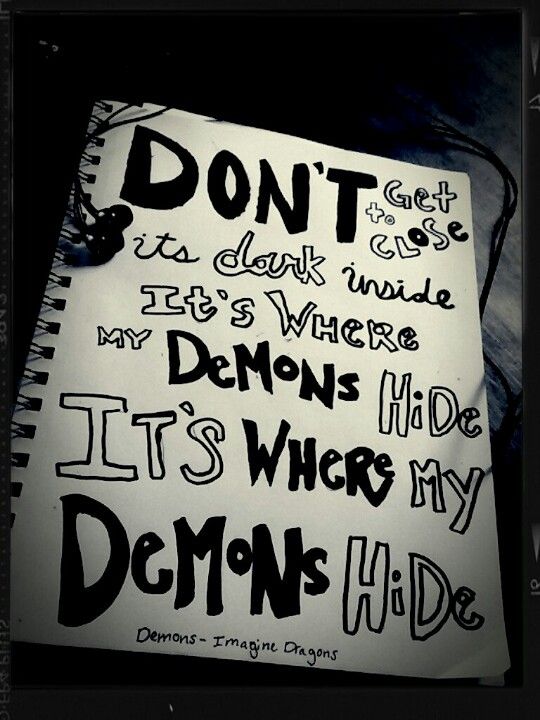 DON'T Get to CLOSe
its dark inside
It's WHeRe
MY DeMoNs HiDe
IT'S WHeRe MY
DeMoNs HiDe
Demons - Imagine Dragons